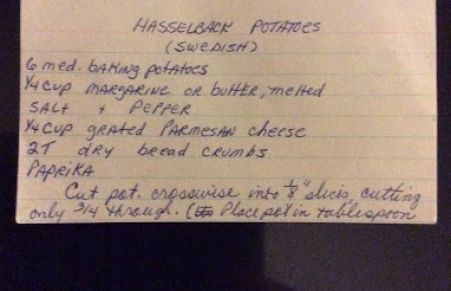 HASSELBACK POTATOES
(SWEDISH)
6 med. bAKING potAtoes
1/4 CUP MARGARINE OR buttER, melted
SALt + PePPER
1/4 CUP gRAted PARMesAN cheese
2T dRY bReAd CRUmbs
PAPRIKA
Cut pot. crosswise into 1/8" slices, cutting
only 3/4 through. ( Place pot in tablespoon